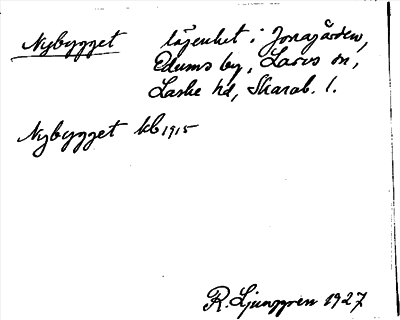 Nybygget lägenhet i Jonagården,
Edums by, Larvs sn,
Laske hd, Skarab. l.
Nybygget kb 1915
R. Ljunggren 1927